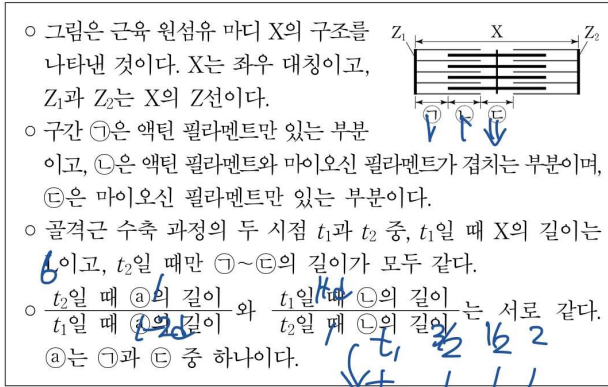 ○ 그림은 근육 원섬유 마디 X의 구조를
나타낸 것이다. X는 좌우 대칭이고,
Z₁과 Z₂는 X의 Z선이다.
Z₁ X Z₂
㉠ ㉡ ㉢
○ 구간 ㉠은 액틴 필라멘트만 있는 부분
이고, ㉡은 액틴 필라멘트와 마이오신 필라멘트가 겹치는 부분이며,
㉢은 마이오신 필라멘트만 있는 부분이다.
○ 골격근 수축 과정의 두 시점 t₁과 t₂ 중, t₁일 때 X의 길이는
6
L이고, t₂일 때만 ㉠~㉢의 길이가 모두 같다.
○ t₂일 때 ⓐ의 길이 / t₁일 때 ⓐ의 길이 와 t₁일 때 ㉡의 길이 / t₂일 때 ㉡의 길이 는 서로 같다.
ⓐ는 ㉠과 ㉢ 중 하나이다.
t₁ 3/2 1/2 2